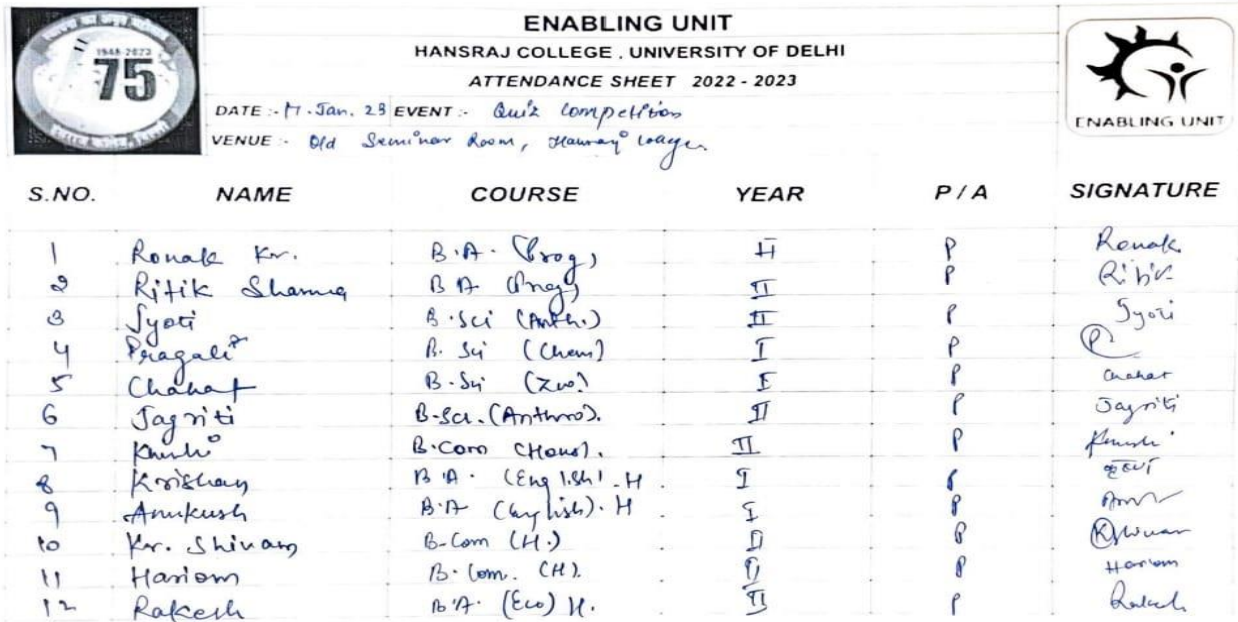 1948-2023
75
ENABLING UNIT
HANSRAJ COLLEGE , UNIVERSITY OF DELHI
ATTENDANCE SHEET 2022 - 2023
DATE :- Jan. 23 EVENT :- Quiz Competition
VENUE :- Old Seminar Room,
ENABLING UNIT
S.NO. NAME COURSE YEAR P / A SIGNATURE
1 Ronak Kr. B.A. (Prog) II P Ronak
2 Ritik Sharma B A (Prog) II P Ritik
3 Jyoti B.Sci (Anth.) II P Jyoti
4 Pragati B. Sci (Chem) I P P
5 Chahat B.Sci (Zoo) I P Chahat
6 Jagriti B-Sci. (Anthro). II P Jagriti
7 Khushi B.Com (Hons). II P Khushi
8 Krishan B.A. (English). H I P कृष्ण
9 Anukush B.A (English). H I P
10 Kr. Shivam B-Com (H.) II P KShivam
11 Hariom B.Com. (H). II P Hariom
12 Rakesh B.A. (Eco) H. II P Rakesh